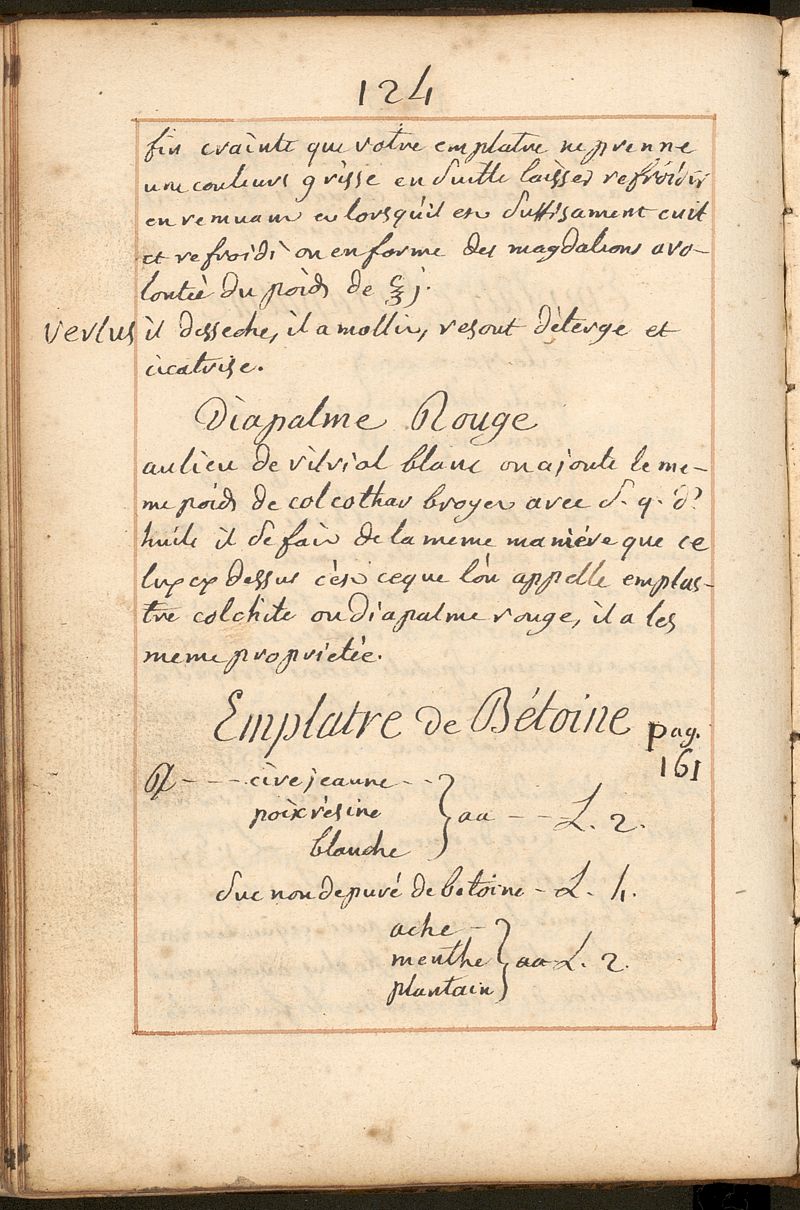 124
fin crainte que votre emplatre ne prenne
une couleurs grisse ensuitte laisses refroidir
en remuant et lorsqu'il est suffisament cuit
et refroidi on en forme des magdalions avo-
lontée du poids de ℥j.
vertus il desseche, il a mollir, resout déterge et
cicatrise.
Diapalme Rouge
aulieu de vitriol blanc on ajoute le me-
me poids de colcothar broyer avec s. q. d?
huile il se fait de la meme maniére que ce
luy cy dessus c'est ceque lón appelle emplas-
tre colchite ou diapalme rouge, il a les
meme proprietée.
Emplatre de Bétoine pag.
161
℞ - - - cire jeaune - -
poix résine } aa - - L. 2.
blanche
suc non depuré de betoine - L. 4.
ache -
menthe } aa L. 2.
plantain